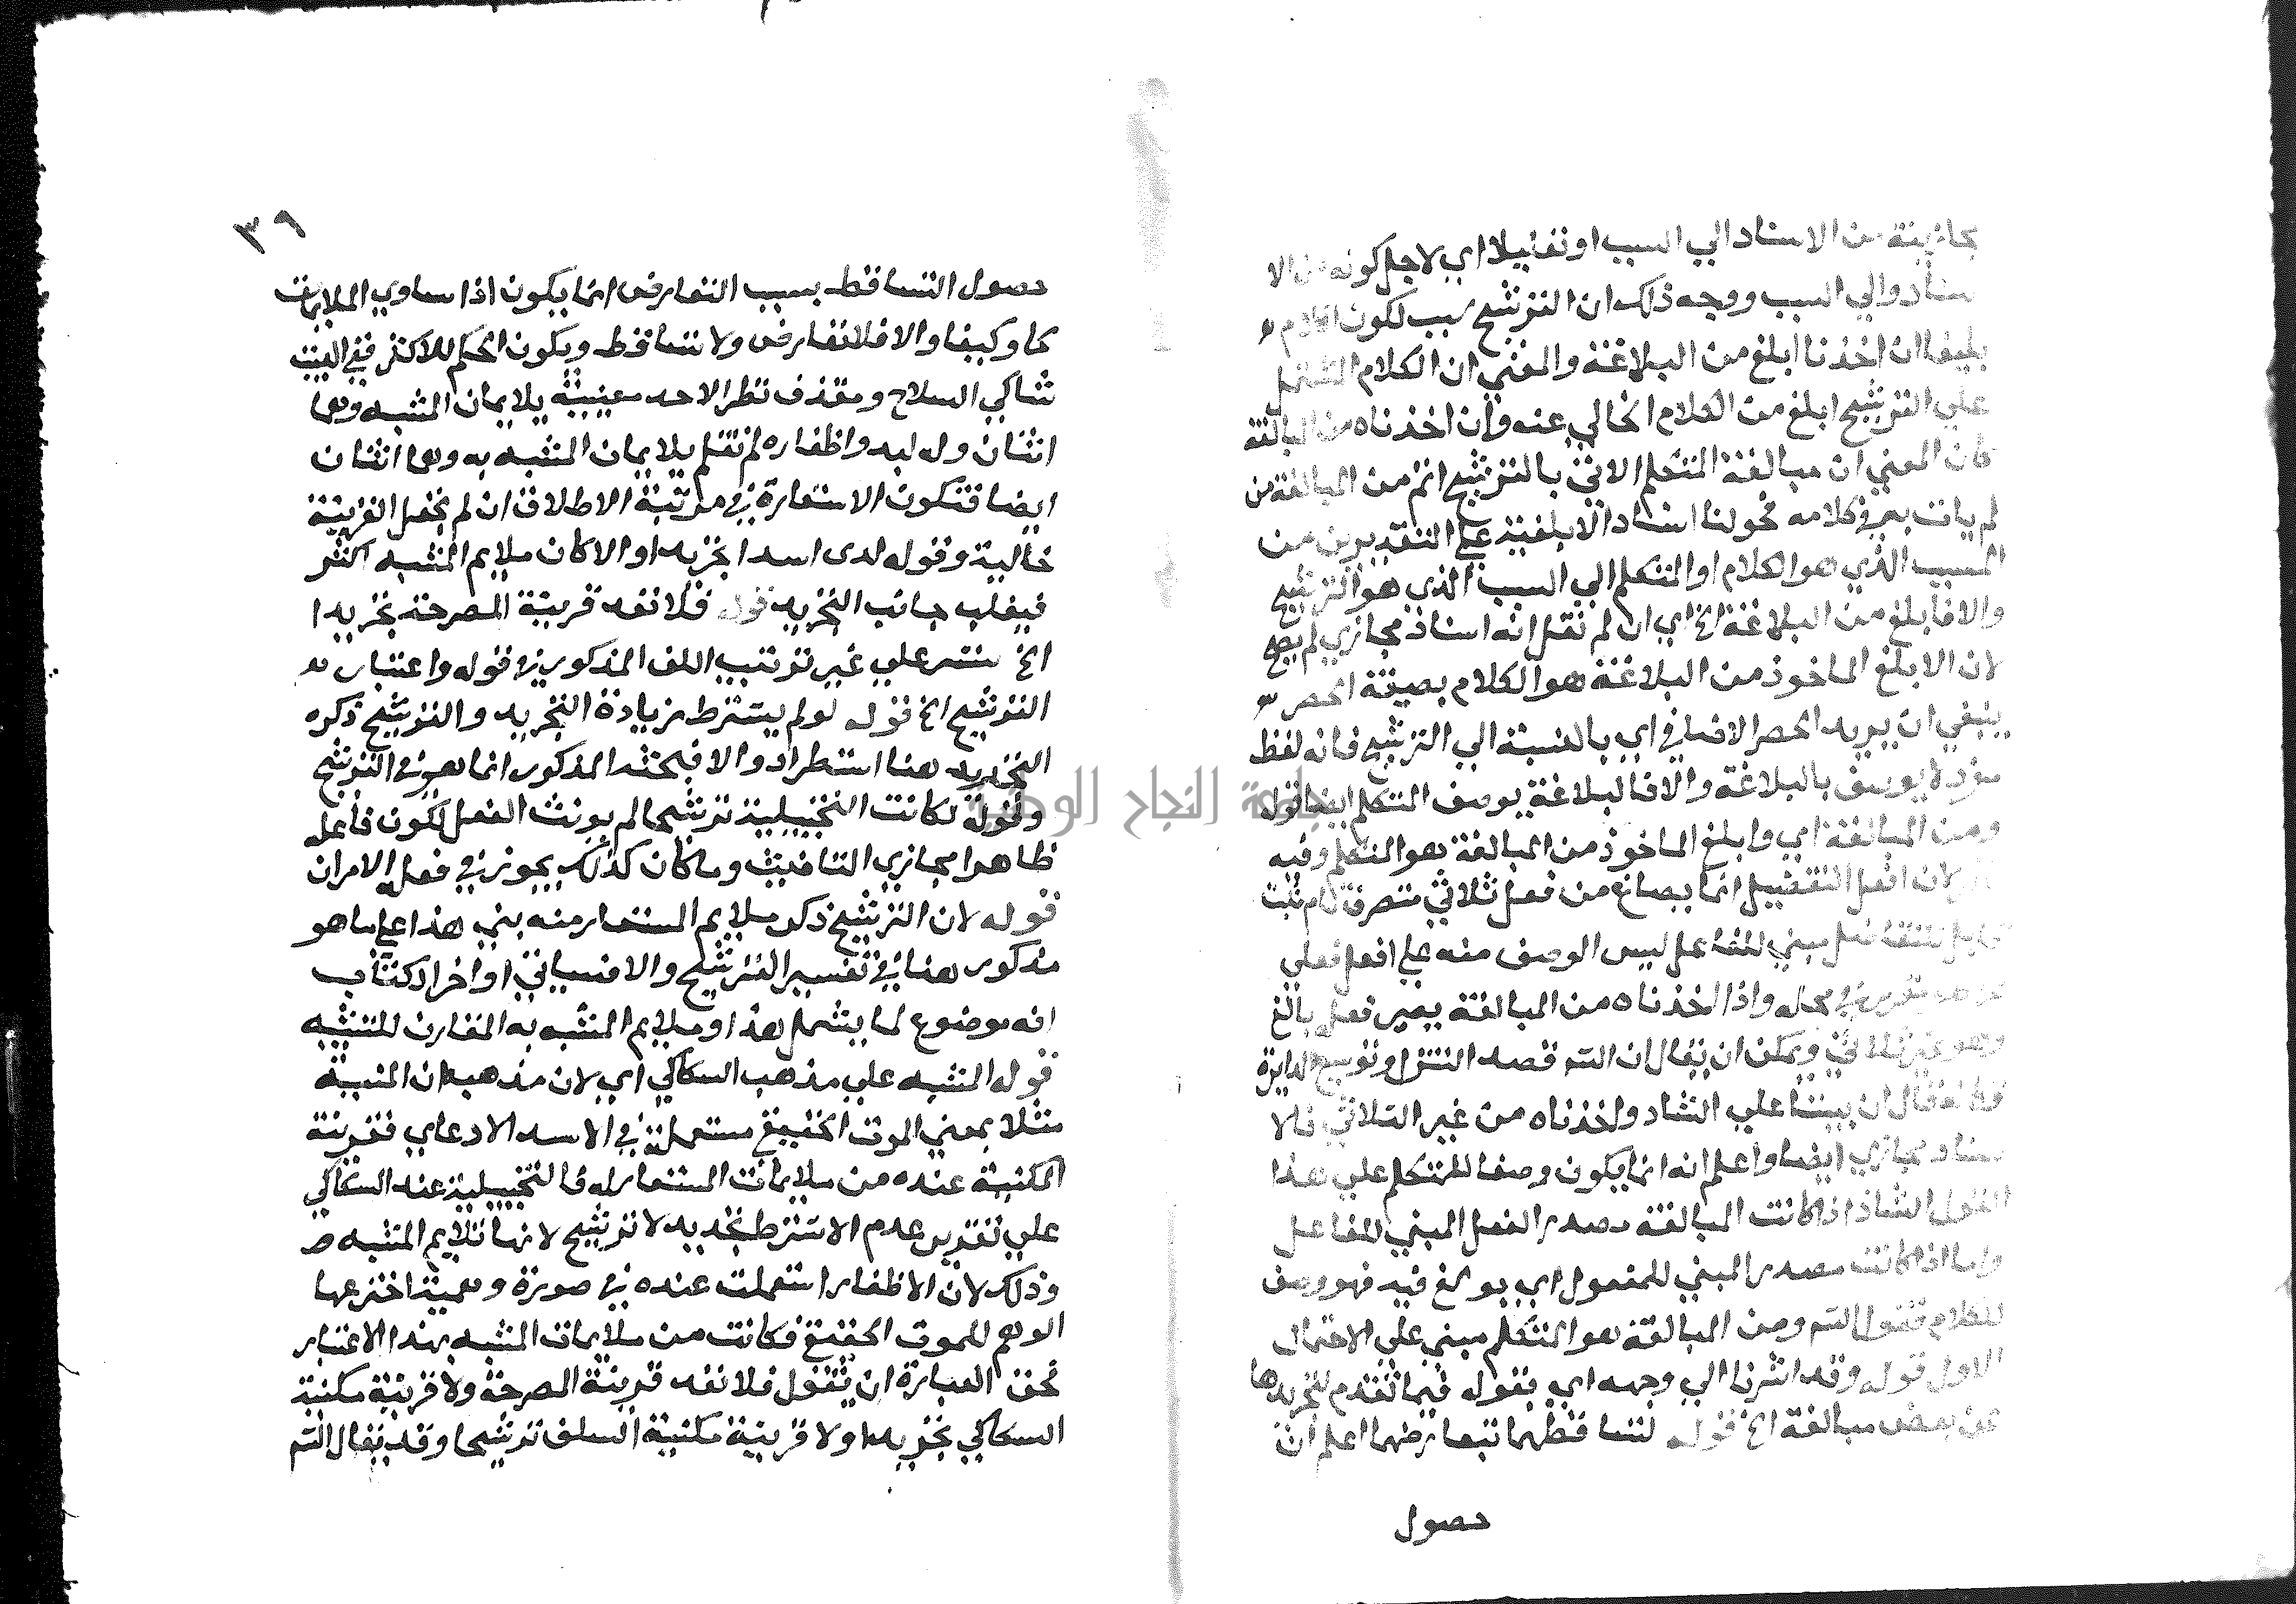 من الاسناد الي السبب او تفنيلا اي لاجل كونه من الا
سناد والي السبب ووجه ذلك ان الترشيح سبب لكون الكلام
بليغا ان اخذنا ابلغ من البلاغة والمعني ان الكلام المشتمل
علي الترشيح ابلغ من الكلام الخالي عنه وان اخذناه من المبالغة
كان المعني ان مبالغة المتكلم الاتي بالترشيح اتم من المبالغة من
لم يات به في كلامه فحولنا اسناد الابلغية علي التقديرين من
المسبب الذي هو الكلام او المتكلم الي السبب الذي هو الترشيح
والا فابلغ من البلاغة الخ اي ان لم نقل انه اسناد مجازي لم يصح
لان الابلغ الماخوذ من البلاغة هو الكلام بصيغة الحصر
ينبغي ان يريد الحصر الاضافي اي بالنسبة الي الترشيح فانه لفظ
مفرد لا يوصف بالبلاغة والا فالبلاغة يوصف المتكلم ايضا قوله
ومن المبالغة اي وابلغ الماخوذ من المبالغة هو المتكلم وفيه
لان افعل التفضيل انما يصاغ من فعل ثلاثي متصرف تام مثبت
مبني للفاعل ليس الوصف منه علي افعل فعلي
في محله واذا اخذناه من المبالغة يصير فعله بالغ
وهو غير ثلاثي ويمكن ان يقال ان الشم قصد التنزل وتوسيع الدايرة
فقال ان بيننا علي الشاد واخذناه من غير الثلاثي فالا
سناد مجازي ايضا واعلم انه انما يكون وصفا للمتكلم علي هذا
القول الشاذ اذا كانت المبالغة مصدر الفعل المبني للفاعل
واما اذا كانت مصدر المبني للمفعول اي بولغ فيه فهو وصف
للكلام فقول الشم ومن المبالغة هو المتكلم مبني علي الاحتمال
الاول قوله وقد اشرنا الي وجهه اي بقوله فيما تقدم لتجريدها
عن بعض مبالغة الخ قوله لتساقطهما بتعارضهما اعلم ان
حصول
٣٩
حصول التساقط بسبب التعارض انما يكون اذا ساوي الملايمات
كما وكيفا والا فلا تعارض ولا تساقط ويكون الحكم للاكثر ففي البيت
شاكي السلاح ومقذف نظرا لاحد معنييه يلايمان المشبه وهما
اثنان وله لبد واظفاره لم تقلم يلايمان المشبه به وهما اثنان
ايضا فتكون الاستعارة في مرتبة الاطلاق ان لم نجعل القرينة
حالية وقوله لدى اسد تجريدا والا كان ملايم المشبه اكثر
فيغلب جانب التجريد قوله فلا تعد قرينة المصرحة تجريدا
الخ نشر علي غير ترتيب اللف المذكور في قوله واعتبار
الترشيح الخ قوله لو لم يشترط زيادة التجريد والترشيح ذكره
التجريد هنا استطراد والا فبحثه المذكور انما هو في الترشيح
وقوله لكانت التخييلية ترشيحا لم يونث الفعل لكون فاعله
ظاهرا مجازي التانيث وما كان كذلك يجوز في فعله الامران
قوله لان الترشيح ذكر ملايم المستعار منه بني هذا علي ما هو
مذكور هنا في تفسير الترشيح والا فسياتي اواخر الكتاب
انه موضوع لما يشمل هذا وملايم المشبه به المقارن للتشبيه
قوله المشبه علي مذهب السكاكي اي لان مذهبه ان المنية
مثلا بمعني الموت الحقيقي مستعملة في الاسد الادعاي فقرينة
المكنية عنده من ملايمات المستعار له فالتخييلية عند السكاكي
علي تقدير عدم الاشتراط تجريد لا ترشيح لانها تلايم المشبه
وذلك لان الاظفار استعملت عنده في صورة وهمية اخترعها
الوهم للموت الحقيقي فكانت من ملايمات المشبه بهذا الاعتبار
فحق العبارة ان يقول فلا تعد قرينة المصرحة ولا قرينة مكنية
السكاكي تجريدا ولا قرينة مكنية السلف ترشيحا وقد يقال الشم
جامعة النجاح الوطنية